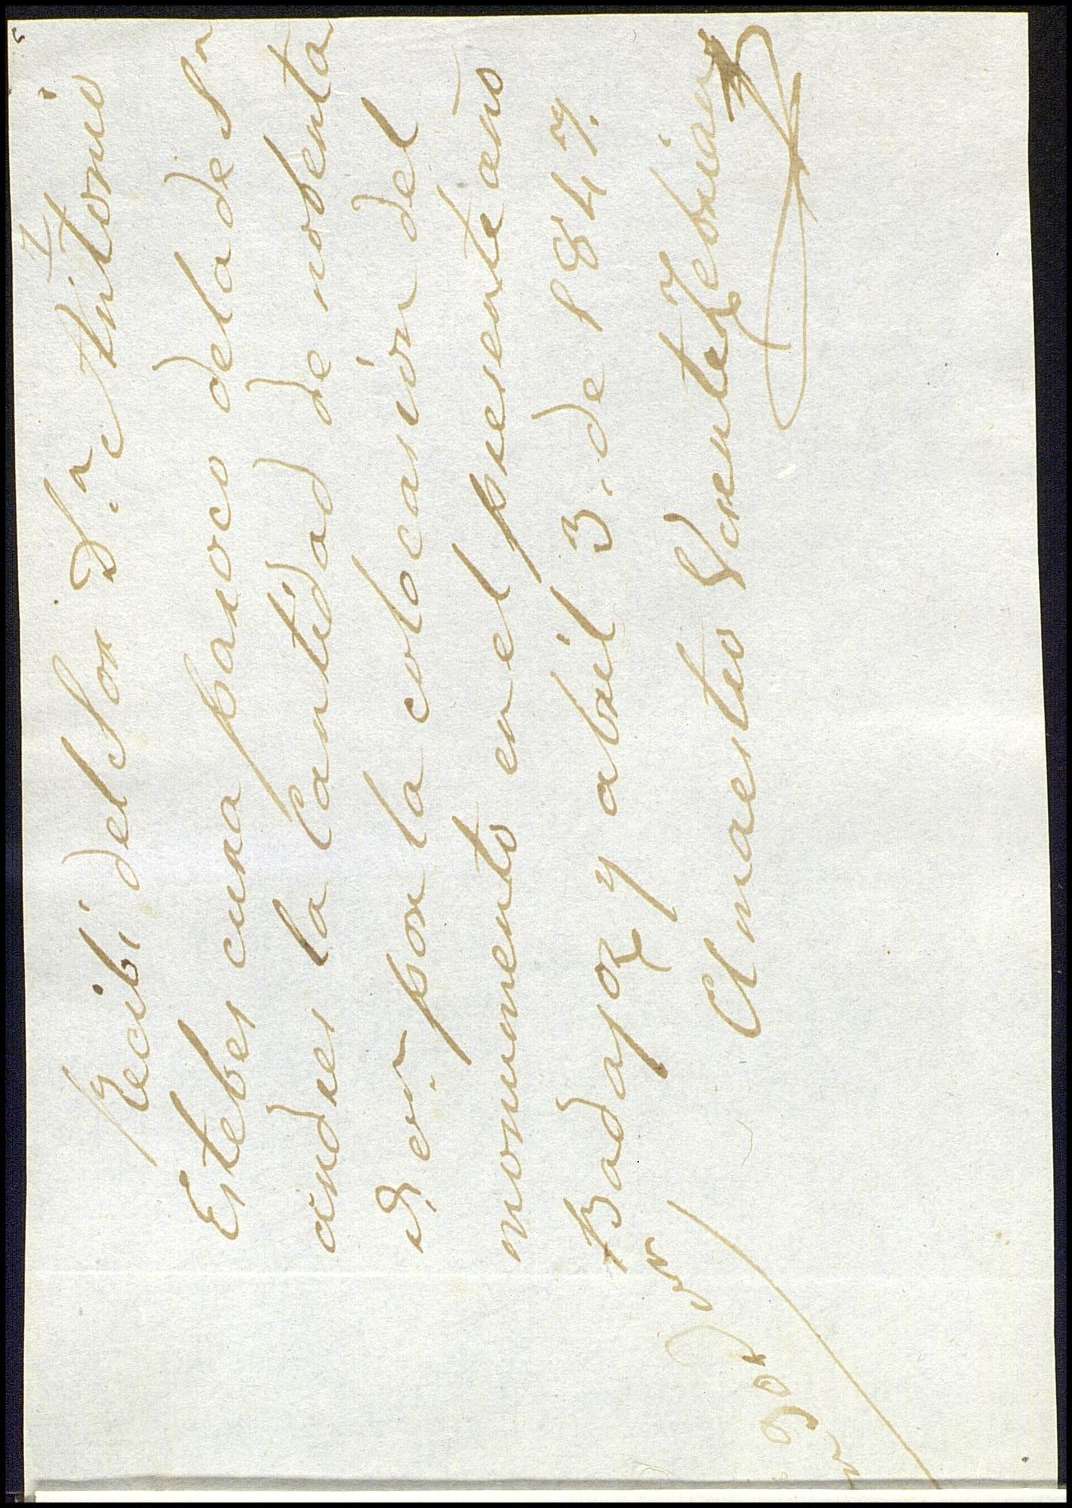 Recibí del Sor. D.n Antonio
Estebes cura paroco dela de Sn
andres la Cantidad de nobenta
r.s v.n por la colocasion del
monumento en el presente año
Badajoz y abril 3. de 1847.
El maestro Vicente
90 r.s v.n